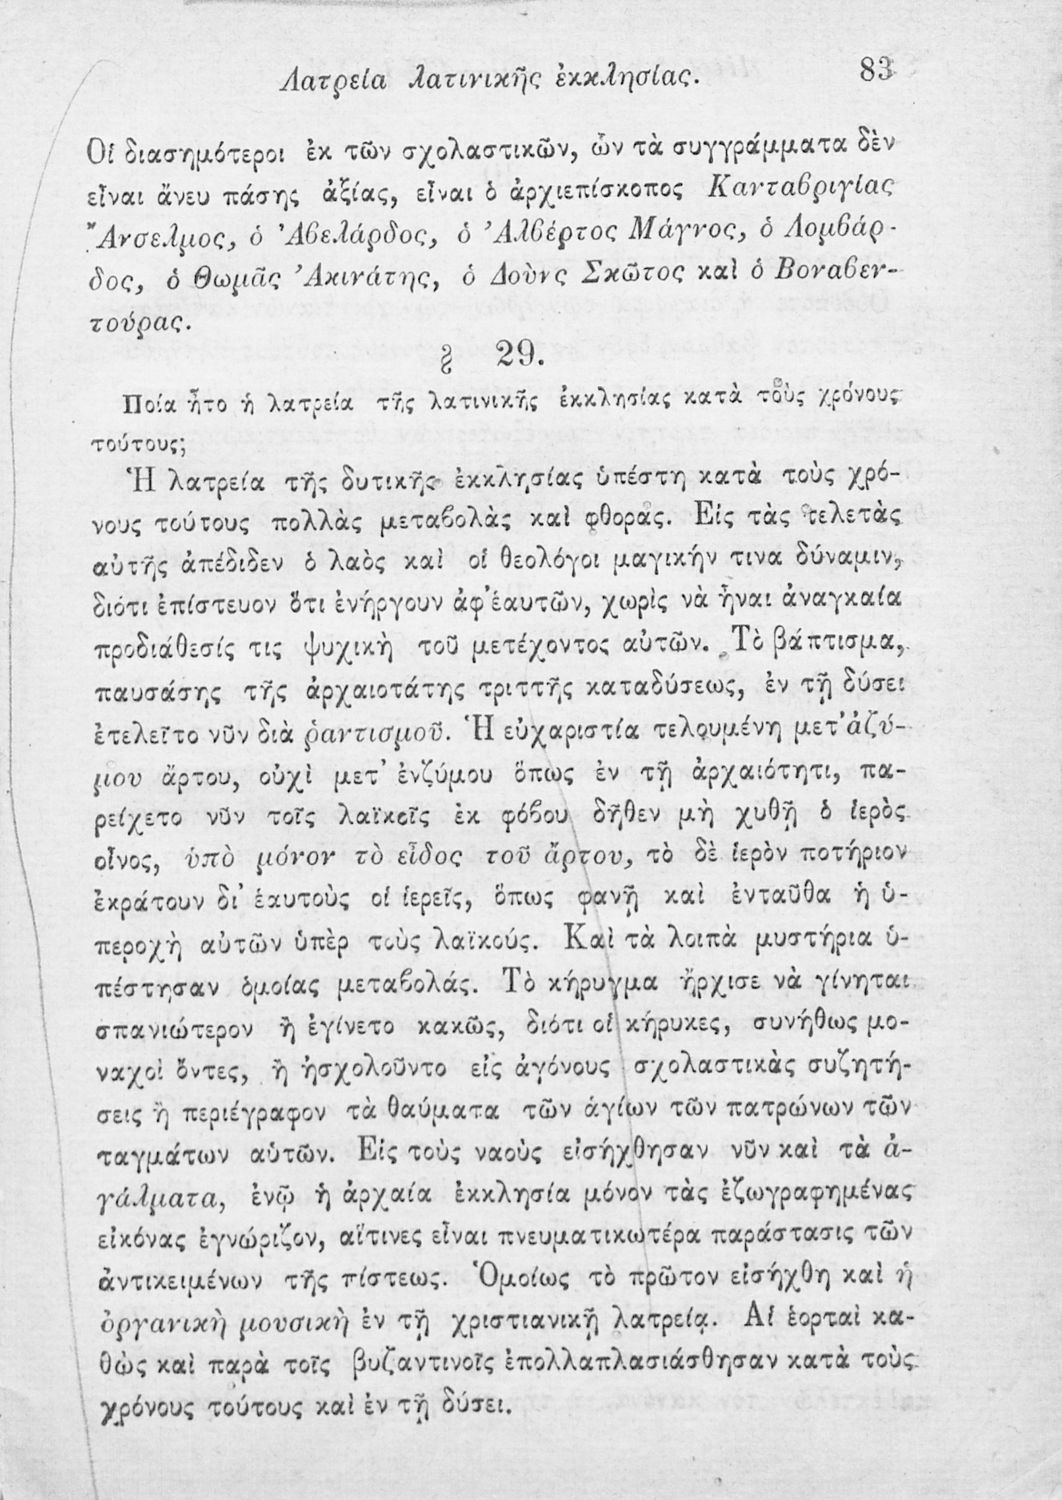 Λατρεία λατινικῆς ἐκκλησίας. 83
Οἱ διασημότεροι ἐκ τῶν σχολαστικῶν, ὧν τὰ συγγράμματα δὲν
εἶναι ἄνευ πάσης ἀξίας, εἶναι ὁ ἀρχιεπίσκοπος Κανταβριγίας
Ἄνσελμος, ὁ Ἀβελάρδος, ὁ Ἀλβέρτος Μάγνος, ὁ Λομβάρ-
δος, ὁ Θωμᾶς Ἀκινάτης, ὁ Δοὺνς Σκῶτος καὶ ὁ Βοναβεν-
τούρας.
§ 29.
Ποία ἦτο ἡ λατρεία τῆς λατινικῆς ἐκκλησίας κατὰ τοὺς χρόνους
τούτους;
Ἡ λατρεία τῆς δυτικῆς ἐκκλησίας ὑπέστη κατὰ τοὺς χρό-
νους τούτους πολλὰς μεταβολὰς καὶ φθοράς. Εἰς τὰς τελετὰς
αὐτῆς ἀπέδιδεν ὁ λαὸς καὶ οἱ θεολόγοι μαγικήν τινα δύναμιν,
διότι ἐπίστευον ὅτι ἐνήργουν ἀφ’ἑαυτῶν, χωρὶς νὰ ἦναι ἀναγκαία
προδιάθεσίς τις ψυχικὴ τοῦ μετέχοντος αὐτῶν. Τὸ βάπτισμα,
παυσάσης τῆς ἀρχαιοτάτης τριττῆς καταδύσεως, ἐν τῇ δύσει
ἐτελεῖτο νῦν διὰ ῥαντισμοῦ. Ἡ εὐχαριστία τελουμένη μετ’ἀζύ-
μου ἄρτου, οὐχὶ μετ’ ἐνζύμου ὅπως ἐν τῇ ἀρχαιότητι, πα-
ρείχετο νῦν τοῖς λαϊκοῖς ἐκ φόβου δῆθεν μὴ χυθῇ ὁ ἱερὸς
οἶνος, ὑπὸ μόνον τὸ εἶδος τοῦ ἄρτου, τὸ δὲ ἱερὸν ποτήριον
ἐκράτουν δι’ ἑαυτοὺς οἱ ἱερεῖς, ὅπως φανῇ καὶ ἐνταῦθα ἡ ὑ-
περοχὴ αὐτῶν ὑπὲρ τοὺς λαϊκούς. Καὶ τὰ λοιπὰ μυστήρια ὑ-
πέστησαν ὁμοίας μεταβολάς. Τὸ κήρυγμα ἤρχισε νὰ γίνηται
σπανιώτερον ἢ ἐγίνετο κακῶς, διότι οἱ κήρυκες, συνήθως μο-
ναχοὶ ὄντες, ἢ ἠσχολοῦντο εἰς ἀγόνους σχολαστικὰς συζητή-
σεις ἢ περιέγραφον τὰ θαύματα τῶν ἁγίων τῶν πατρώνων τῶν
ταγμάτων αὑτῶν. Εἰς τοὺς ναοὺς εἰσήχθησαν νῦν καὶ τὰ ἀ-
γάλματα, ἐνῷ ἡ ἀρχαία ἐκκλησία μόνον τὰς ἐζωγραφημένας
εἰκόνας ἐγνώριζον, αἵτινες εἶναι πνευματικωτέρα παράστασις τῶν
ἀντικειμένων τῆς πίστεως. Ὁμοίως τὸ πρῶτον εἰσήχθη καὶ ἡ
ὀργανικὴ μουσικὴ ἐν τῇ χριστιανικῇ λατρείᾳ. Αἱ ἑορταὶ κα-
θὼς καὶ παρὰ τοῖς βυζαντινοῖς ἐπολλαπλασιάσθησαν κατὰ τοὺς
χρόνους τούτους καὶ ἐν τῇ δύσει.